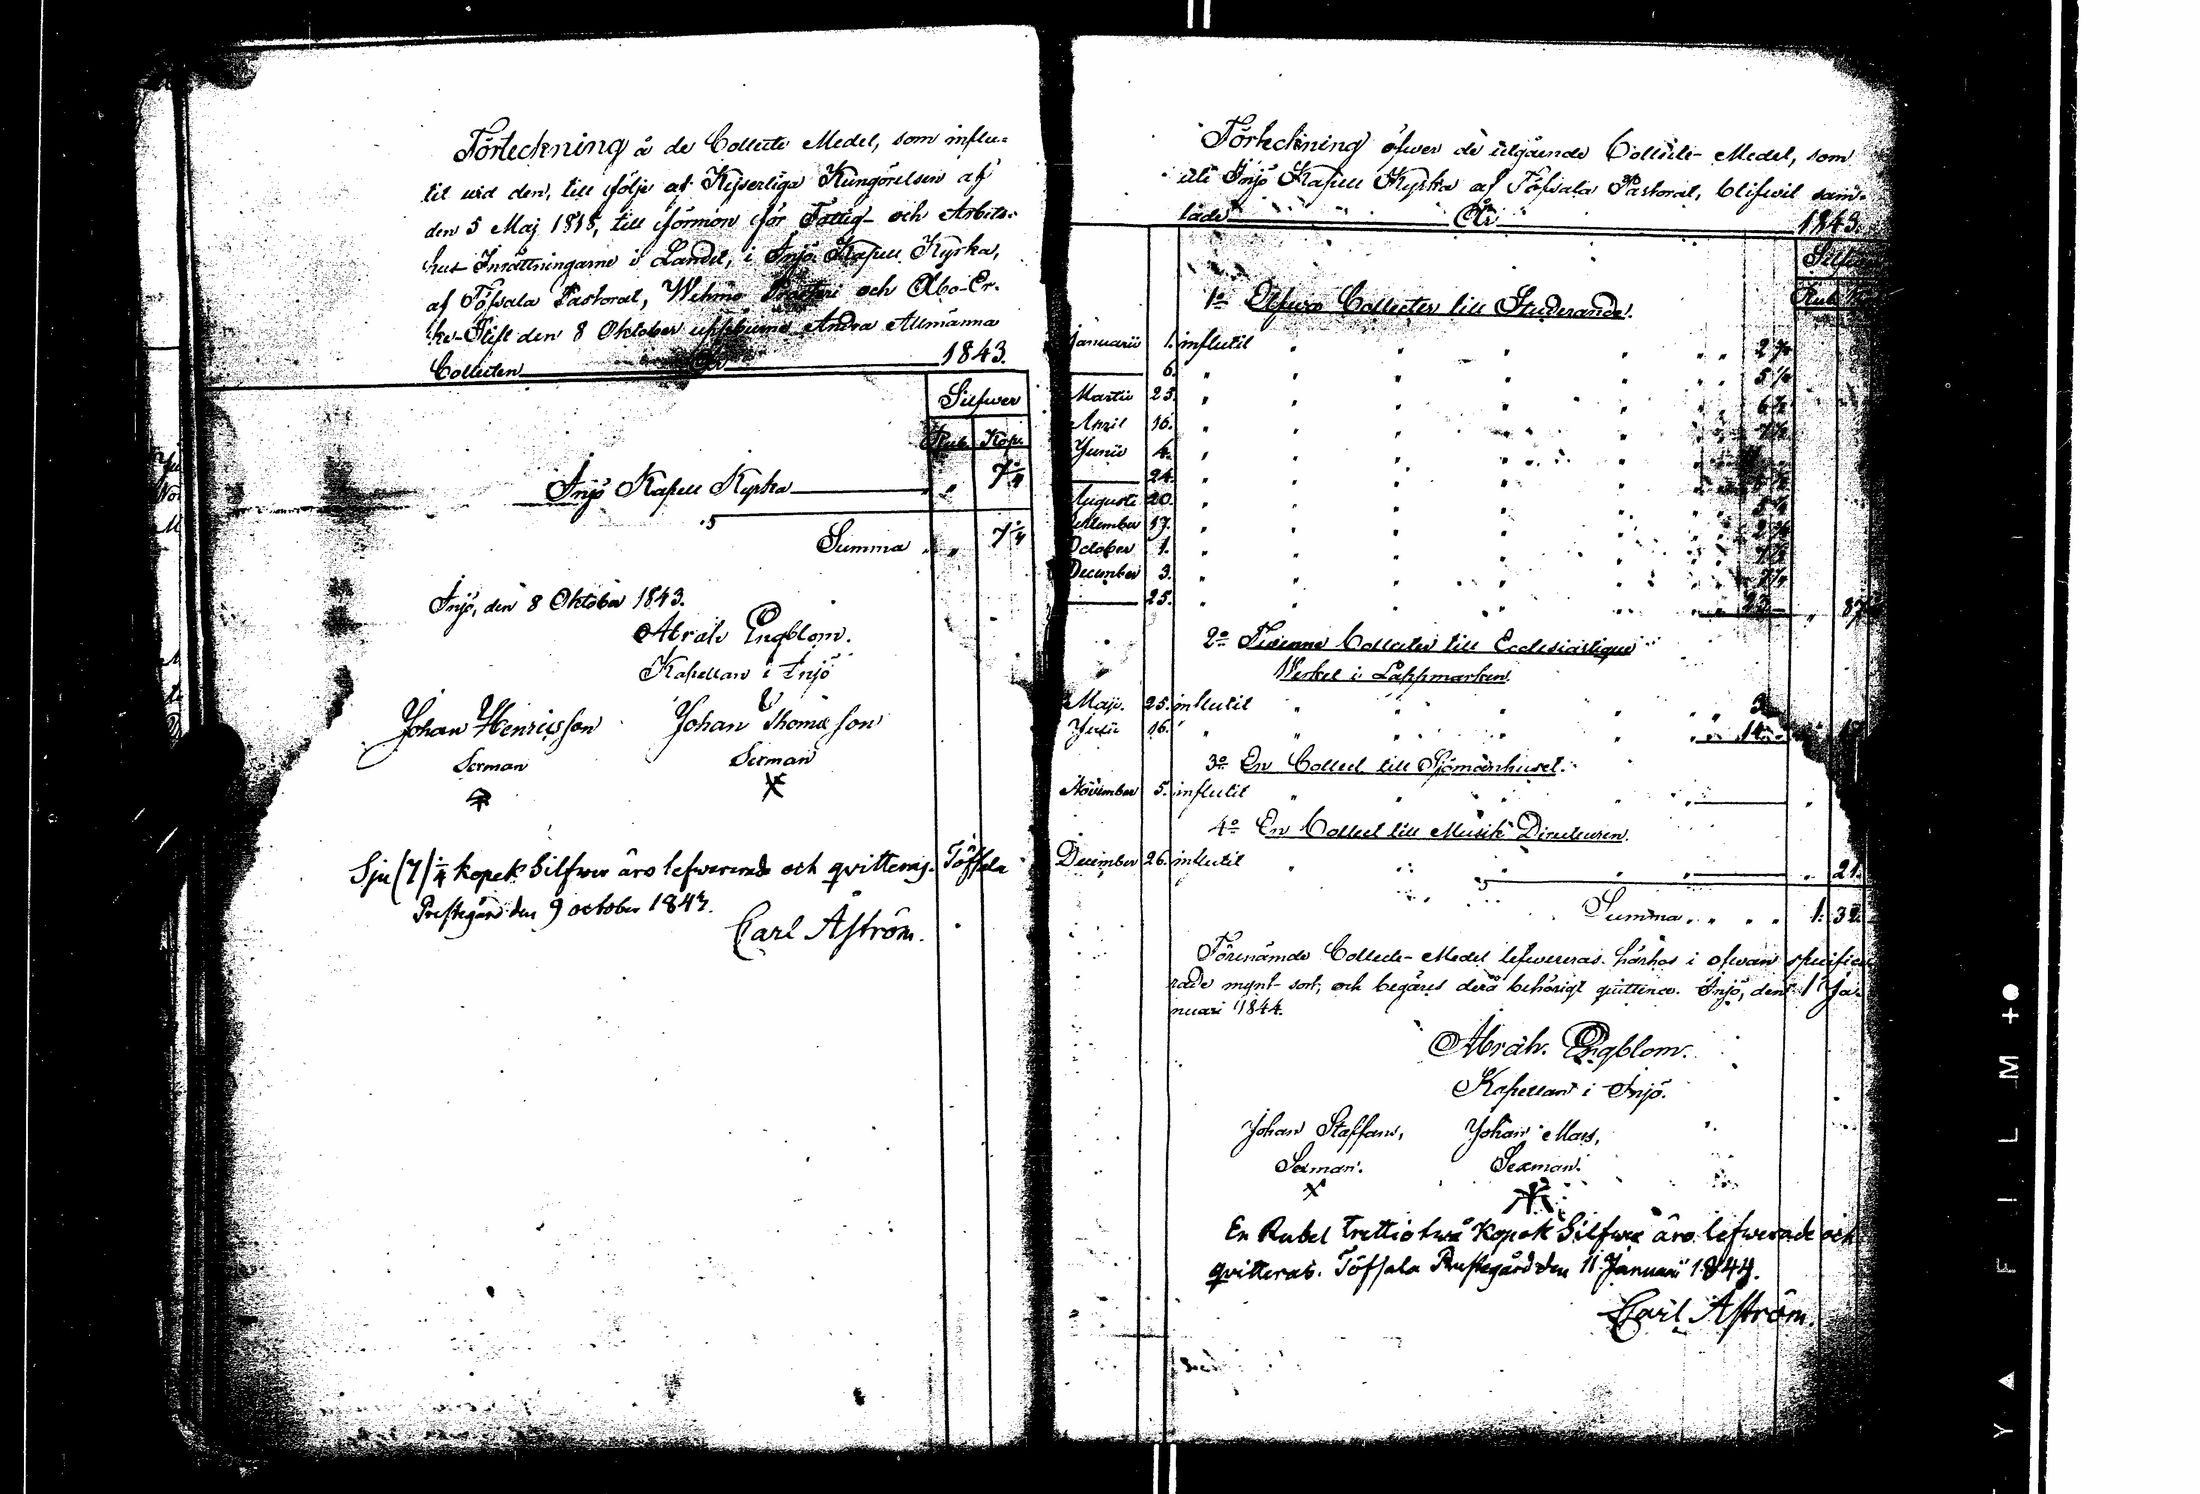 Förteckning å de Collecte Medel, som influ-
tit vid den, till följe af Kejserliga Kungörelsen af
den 5 Maj 1818, till förmon för Fattig- och Arbets-
hus Inrättningarne i Landet, i Iniö Kapell Kyrka,
af Töfsala Pastorat, Wehmo Prosteri och Åbo-Er-
ke-Stift den 8 Oktober uppburne Andra Allmänna
Collecten År 1843.
Silfwer
Rub. Kop.
Iniö Kapell Kyrka " 7 1/4
Summa " 7 1/4
Iniö, den 8 Oktober 1843.
Abrah. Engblom.
Kapellan i Iniö
Johan Henricsson Johan Thomasson
Sexman Sexman
Sju (7) 1/4 kopek Silfwer äro lefwererade och qvitteras. Töfsala
Prestegård den 9 october 1843.
Carl Åström.
Förteckning öfwer de utgående Collecte-Medel, som
uti Iniö Kapell Kyrka af Töfsala Pastorat, blifwit sam-
lade År 1843.
Silfwer
Rub. Kop.
1o Öfwer Collecter till Studerande.
Januarii 1. influtit
6. "
Martii 25. "
April 16. "
Junii 4. "
24. "
Augusti 20. "
September 17. "
October 1. "
December 3. "
25. " 23 " 87
2o Tvenne Collecter till Ecclesiastique
Werket i Lappmarken.
Maji. 25. influtit 3
16. " 14
3o En Collect till Sjömanshuset.
November 5. influtit
4o En Collect till Musik Directeuren.
December 26. influtit " 21.
Summa 1. 32.
Förenämde Collecte-Medel lefwereras härhos i ofwan specifice-
rade mynt-sort, och begäres derå behörigt quittence. Iniö, den 1 Ja-
nuari 1844.
Abrah. Engblom.
Kapellan i Iniö.
Johan Staffans, Johan Mars,
Sexman. Sexman.
En Rubel trettiotwå kopek Silfwer äro lefwerade och
qvitteras. Töfsala Prestegård den 11 Januari 1844.
Carl Åström.
Y ▲ F I L M +●